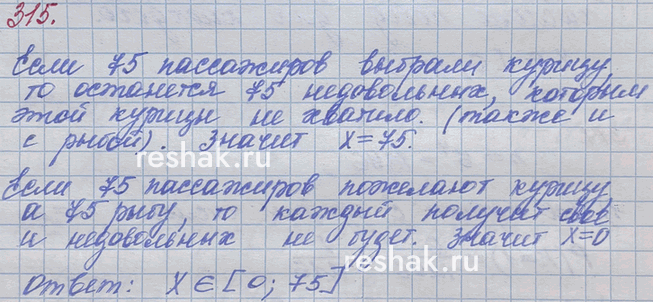 315.
Если 75 пассажиров выбрали курицу,
то останется 75 недовольных, которым
этой курицы не хватило. (также и
с рыбой). Значит x=75.
reshak.ru
Если 75 пассажиров пожелают курицу
а 75 рыбу, то каждый получит своё
и недовольных не будет. Значит x=0
reshak.ru
Ответ: x ∈ [0; 75]